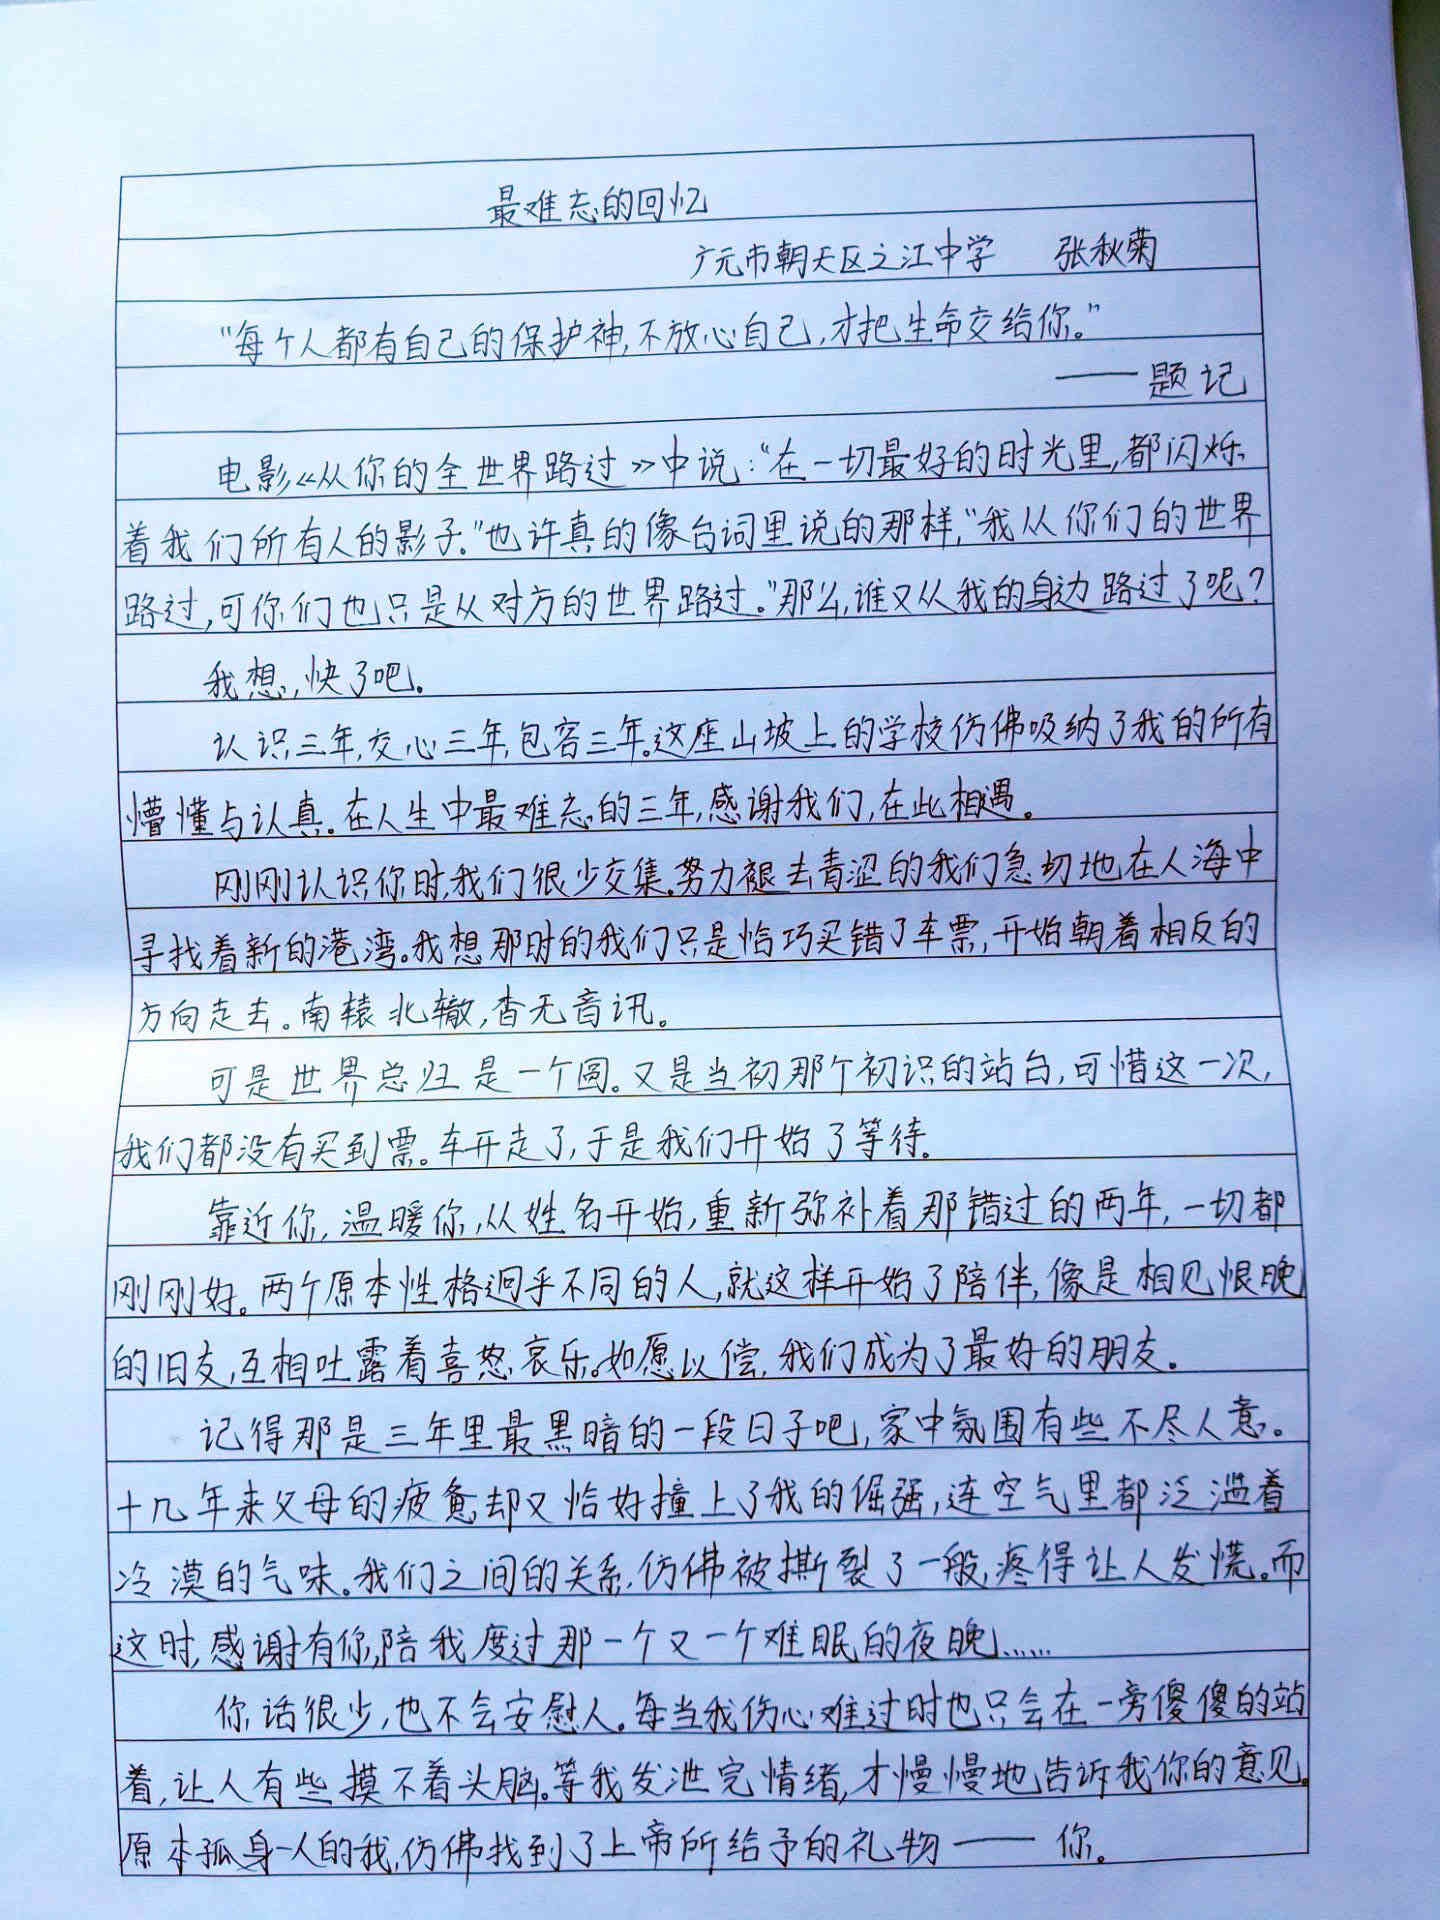 最难忘的回忆
广元市朝天区之江中学 张秋菊
“每个人都有自己的保护神，不放心自己，才把生命交给你。”
——题记
电影《从你的全世界路过》中说：“在一切最好的时光里，都闪烁
着我们所有人的影子。”也许真的像台词里说的那样，“我从你们的世界
路过，可你们也只是从对方的世界路过。”那么，谁又从我的身边路过了呢？
我想，快了吧。
认识三年，交心三年，包容三年。这座山坡上的学校仿佛吸纳了我的所有
懵懂与认真。在人生中最难忘的三年，感谢我们，在此相遇。
刚刚认识你时，我们很少交集。努力褪去青涩的我们急切地在人海中
寻找着新的港湾。我想那时的我们只是恰巧买错了车票，开始朝着相反的
方向走去。南辕北辙，杳无音讯。
可是世界总归是一个圆。又是当初那个初识的站台，可惜这一次，
我们都没有买到票。车开走了，于是我们开始了等待。
靠近你，温暖你，从姓名开始，重新弥补着那错过的两年，一切都
刚刚好。两个原本性格迥乎不同的人，就这样开始了陪伴，像是相见恨晚
的旧友，互相吐露着喜怒哀乐。如愿以偿，我们成为了最好的朋友。
记得那是三年里最黑暗的一段日子吧，家中氛围有些不尽人意。
十几年来父母的疲惫却又恰好撞上了我的倔强，连空气里都泛滥着
冷漠的气味。我们之间的关系，仿佛被撕裂了一般，疼得让人发慌。而
这时，感谢有你，陪我度过那一个又一个难眠的夜晚……
你话很少，也不会安慰人。每当我伤心难过时也只会在一旁傻傻的站
着，让人有些摸不着头脑。等我发泄完情绪，才慢慢地告诉我你的意见。
原本孤身一人的我，仿佛找到了上帝所给予的礼物——你。